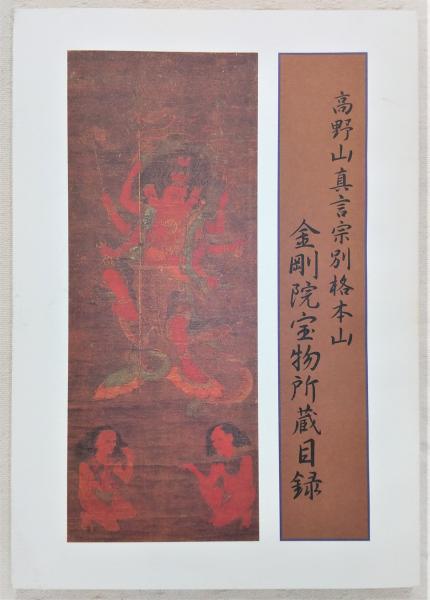 高野山真言宗別格本山
金剛院宝物所蔵目録